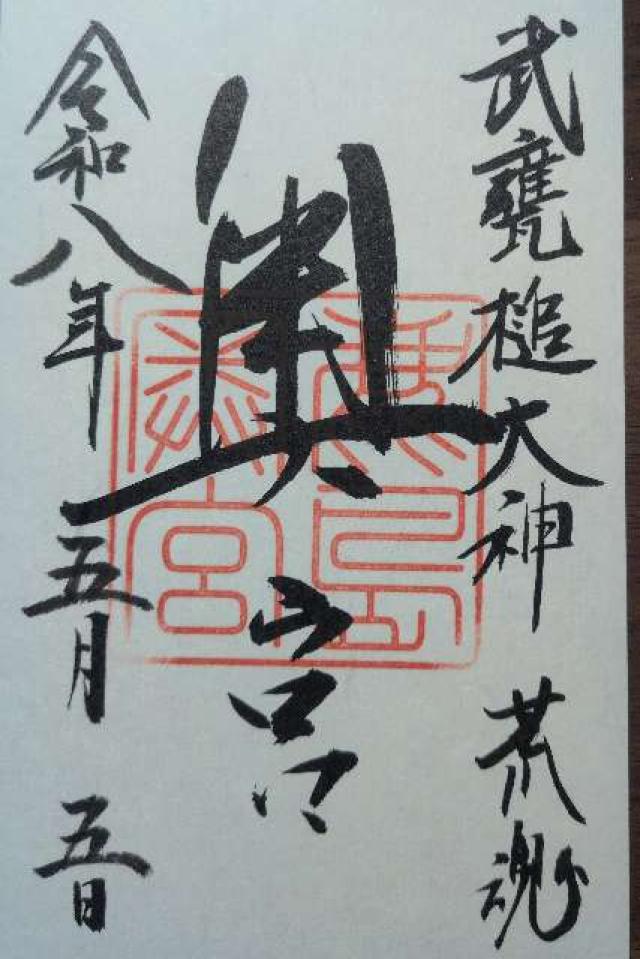 武甕槌大神 荒魂
奥宮
鹿島
奥宮
令和八年 五月 五日